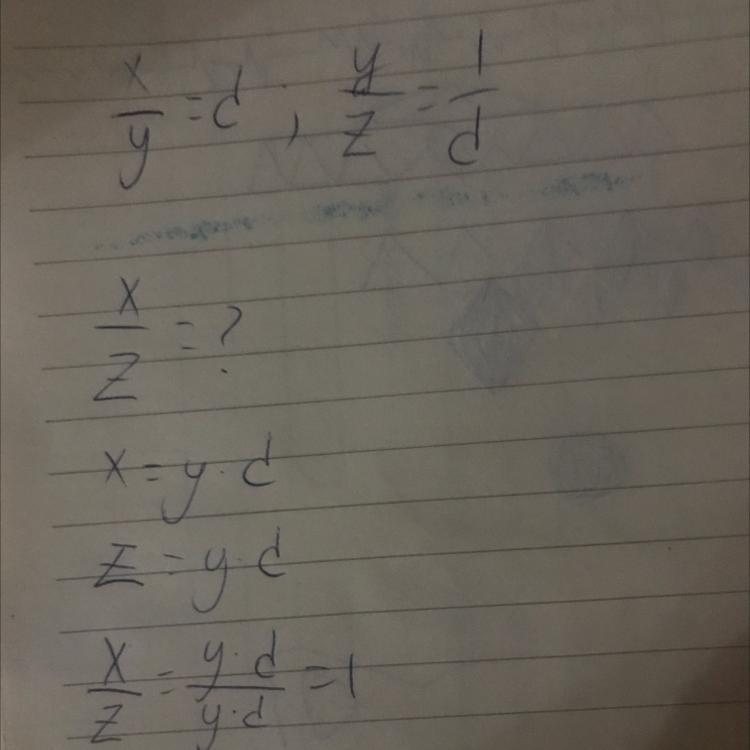 x/y = d ; y/z = 1/d
x/z = ?
x = y · d
z = y · d
x/z = y · d / y · d = 1